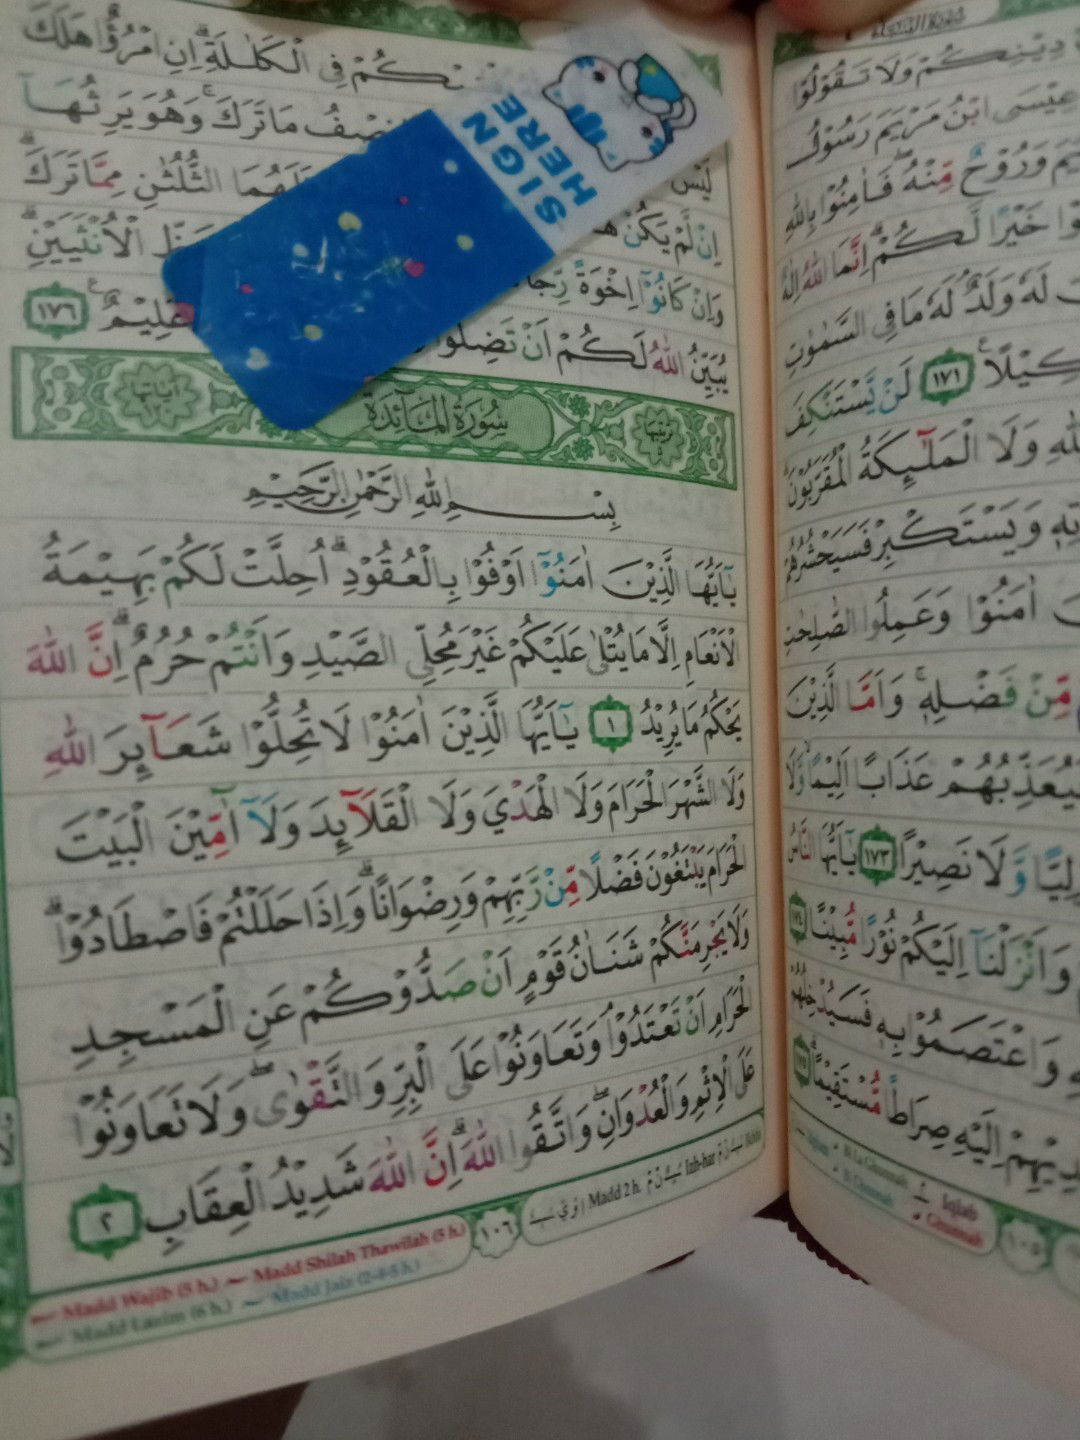 دِيْنِكُمْ وَلَا تَقُوْلُوْا
عِيْسَى ابْنُ مَرْيَمَ رَسُوْلُ
وَرُوْحٌ مِّنْهُ فَاٰمِنُوْا بِاللّٰهِ
خَيْرًا لَّكُمْ اِنَّمَا اللّٰهُ اِلٰهٌ
لَهٗ وَلَدٌ لَهٗ مَا فِى السَّمٰوٰتِ
١٧١ لَنْ يَّسْتَنْكِفَ
وَلَا الْمَلٰۤىِٕكَةُ الْمُقَرَّبُوْنَ
وَيَسْتَكْبِرْ فَسَيَحْشُرُهُمْ
اٰمَنُوْا وَعَمِلُوا الصّٰلِحٰتِ
مِّنْ فَضْلِهٖ وَاَمَّا الَّذِيْنَ
عَذَابًا اَلِيْمًا وَّلَا
وَّلَا نَصِيْرًا ١٧٣ يٰٓاَيُّهَا النَّاسُ
وَاَنْزَلْنَآ اِلَيْكُمْ نُوْرًا مُّبِيْنًا ١٧٤
وَاعْتَصَمُوْا بِهٖ فَسَيُدْخِلُهُمْ
اِلَيْهِ صِرَاطًا مُّسْتَقِيْمًا ١٧٥
Iqlab
Ghunnah
١٠٥
SIGN
HERE
فِى الْكَلٰلَةِ اِنِ امْرُؤٌا هَلَكَ
لَيْسَ نِصْفُ مَا تَرَكَ وَهُوَ يَرِثُهَآ
اِنْ لَّمْ يَكُنْ الثُّلُثٰنِ مِمَّا تَرَكَ
وَاِنْ كَانُوْٓا اِخْوَةً الْاُنْثَيَيْنِ
يُبَيِّنُ اللّٰهُ لَكُمْ اَنْ تَضِلُّوْا عَلِيْمٌ ١٧٦
سُوْرَةُ الْمَآئِدَةِ
بِسْمِ اللّٰهِ الرَّحْمٰنِ الرَّحِيْمِ
يٰٓاَيُّهَا الَّذِيْنَ اٰمَنُوْٓا اَوْفُوْا بِالْعُقُوْدِ اُحِلَّتْ لَكُمْ بَهِيْمَةُ
الْاَنْعَامِ اِلَّا مَا يُتْلٰى عَلَيْكُمْ غَيْرَ مُحِلِّى الصَّيْدِ وَاَنْتُمْ حُرُمٌ اِنَّ اللّٰهَ
يَحْكُمُ مَا يُرِيْدُ ١ يٰٓاَيُّهَا الَّذِيْنَ اٰمَنُوْا لَا تُحِلُّوْا شَعَاۤىِٕرَ اللّٰهِ
وَلَا الشَّهْرَ الْحَرَامَ وَلَا الْهَدْيَ وَلَا الْقَلَاۤىِٕدَ وَلَآ اٰۤمِّيْنَ الْبَيْتَ
الْحَرَامَ يَبْتَغُوْنَ فَضْلًا مِّنْ رَّبِّهِمْ وَرِضْوَانًا وَاِذَا حَلَلْتُمْ فَاصْطَادُوْا
وَلَا يَجْرِمَنَّكُمْ شَنَاٰنُ قَوْمٍ اَنْ صَدُّوْكُمْ عَنِ الْمَسْجِدِ
الْحَرَامِ اَنْ تَعْتَدُوْا وَتَعَاوَنُوْا عَلَى الْبِرِّ وَالتَّقْوٰى وَلَا تَعَاوَنُوْا
عَلَى الْاِثْمِ وَالْعُدْوَانِ وَاتَّقُوا اللّٰهَ اِنَّ اللّٰهَ شَدِيْدُ الْعِقَابِ ٢
Madd Wajib (5 h.) Madd Shilah Thawilah (5 h.)
Madd Lazim (6 h.) Madd Jaiz (2-4-5 h.)
١٠٦
Madd 2 h. Izh-har